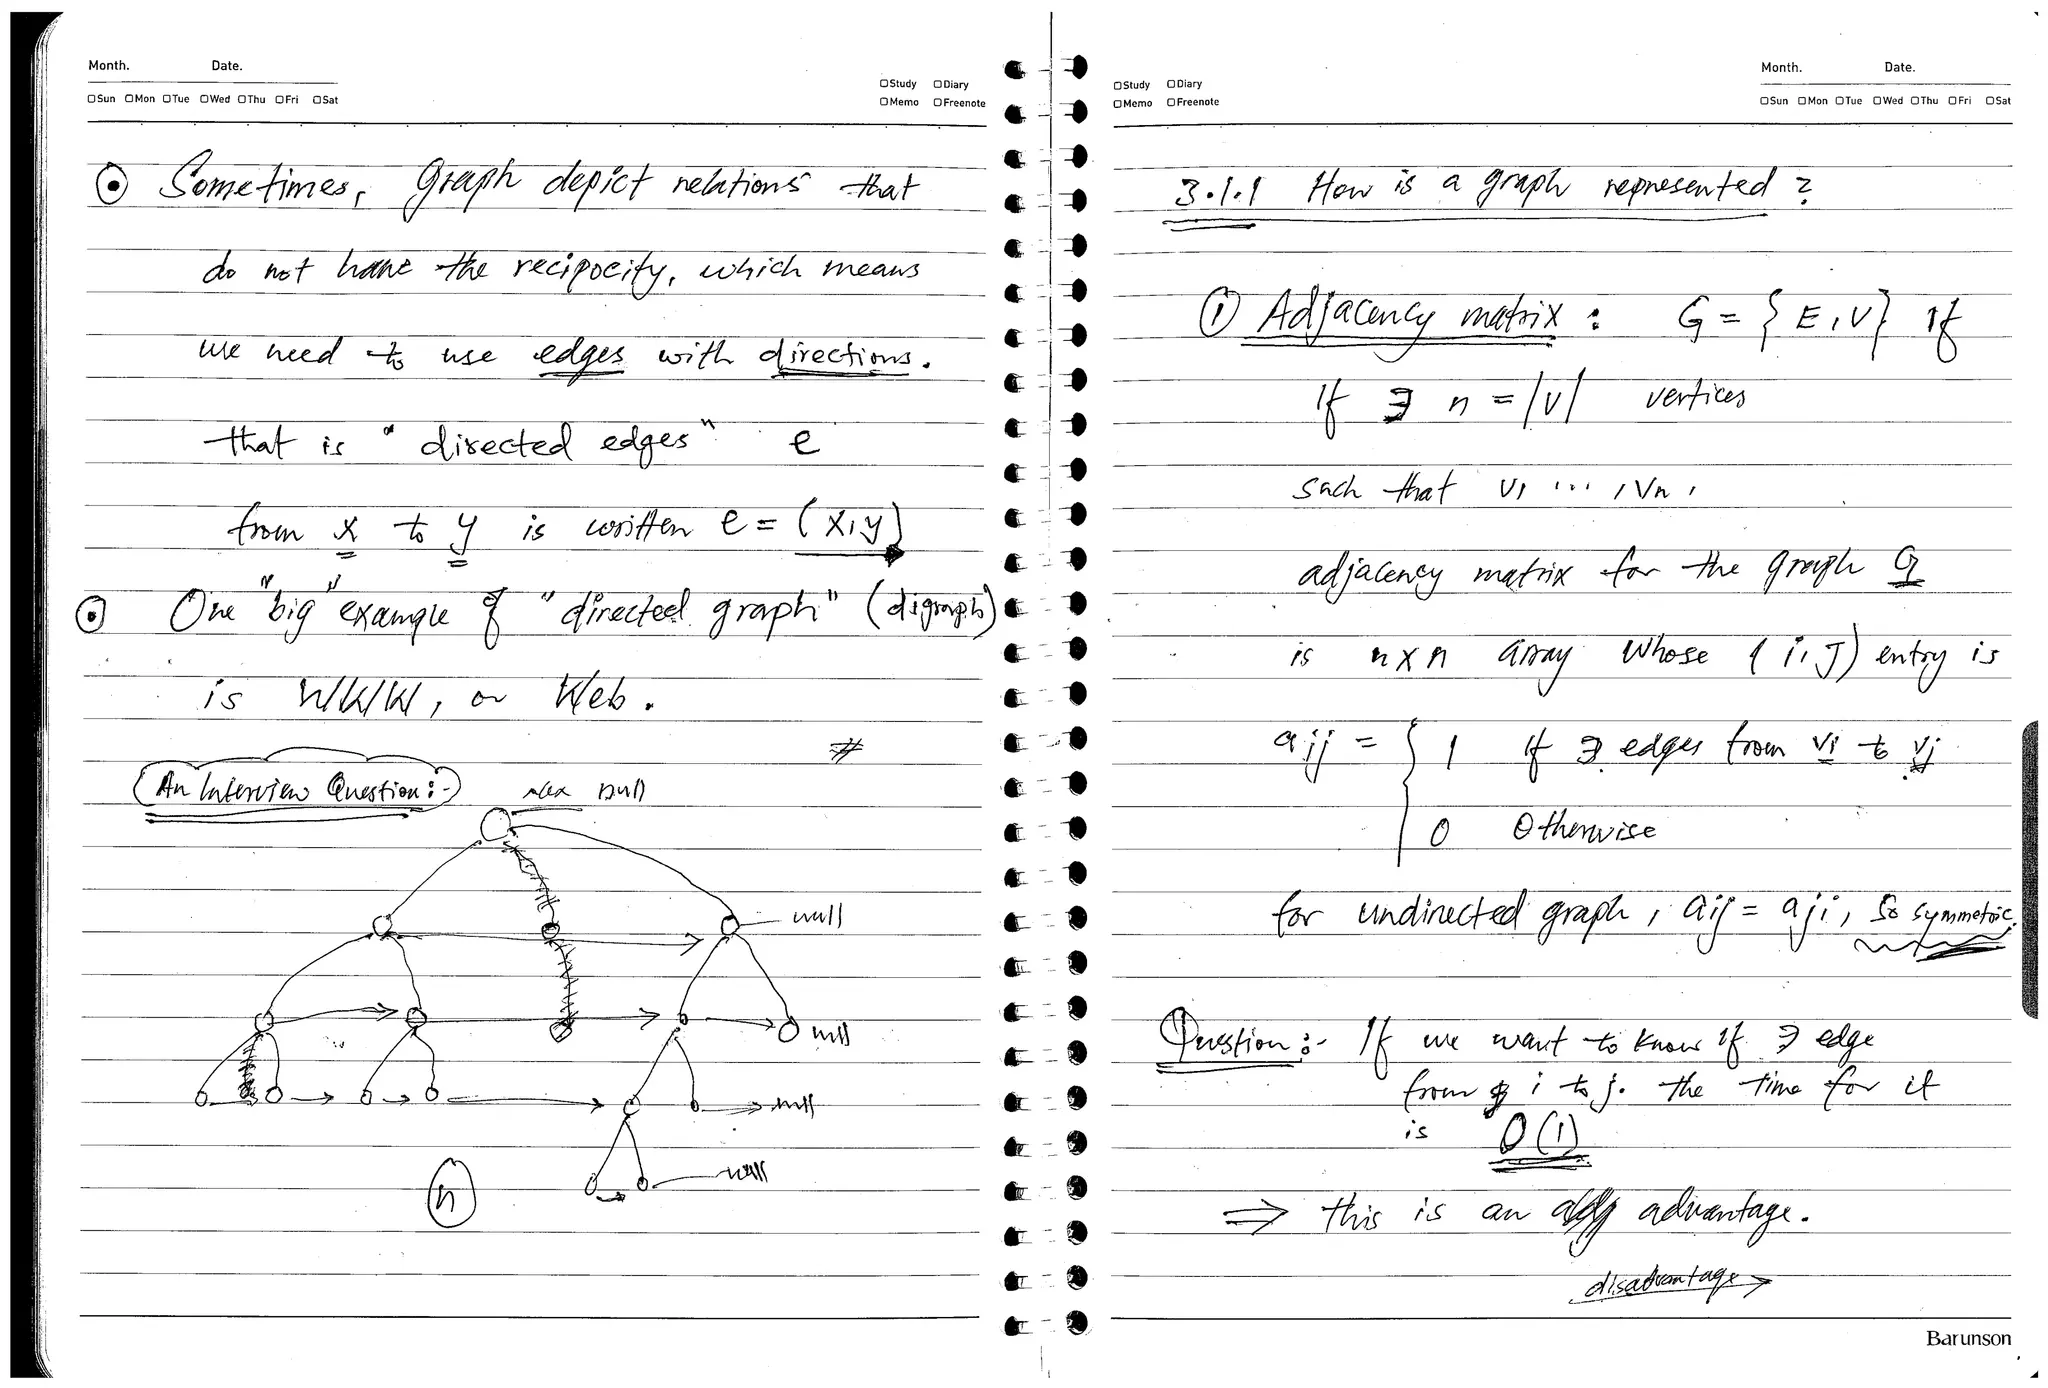 Month. Date.
□Study □Diary
□Sun □Mon □Tue □Wed □Thu □Fri □Sat
□Memo □Freenote
Sometimes, Graph depict relations that
do not have the recipocity, which means
we need to use edges with directions.
that is "directed edges" e
from x to y is written e = (x,y)
One "big" example of "directed graph" (digraph)
is WWW, or Web.
#
An Interview Question:-
null
null
null
null
null
n
□Study □Diary
□Memo □Freenote
Month. Date.
□Sun □Mon □Tue □Wed □Thu □Fri □Sat
3.1.1 How is a graph represented?
① Adjacency matrix : G = {E,V} If
If ∃ n = |V| vertices
such that v1 ... , vn,
adjacency matrix for the graph G
is n×n array whose (i,J) entry is
aij = { 1 if ∃ edges from vi to vj
0 Otherwise
for undirected graph, aij = aji, so symmetric.
Question:- If we want to know if ∃ edge
from i to j. the time for it
is O(1)
⇒ this is an advantage.
disadvantage →
Barunson